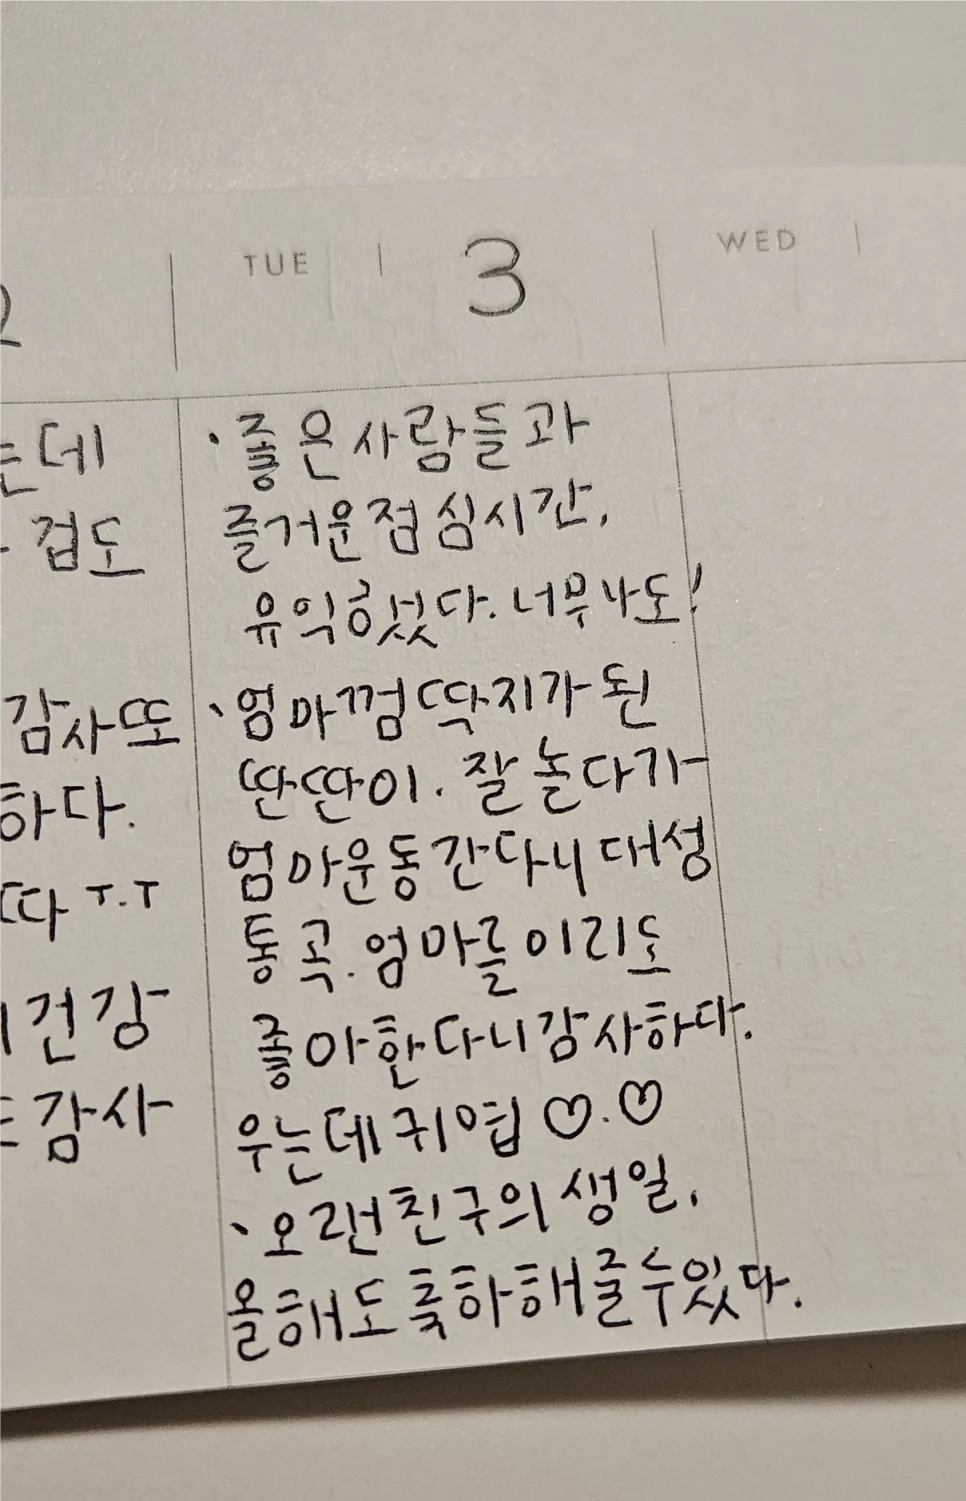 TUE 3
WED
는데
겁도
감사또
하다.
따 ㅜ.ㅜ
건강
감사
· 좋은사람들과
즐거운점심시간.
유익했다. 너무나도!
· 엄마껌딱지가 된
딴딴이. 잘 놀다가
엄마운동간다니 대성
통곡. 엄마를 이리도
좋아한다니 감사하다.
우는데 귀엽 ♡.♡
· 오랜친구의 생일.
올해도 축하해줄수있다.